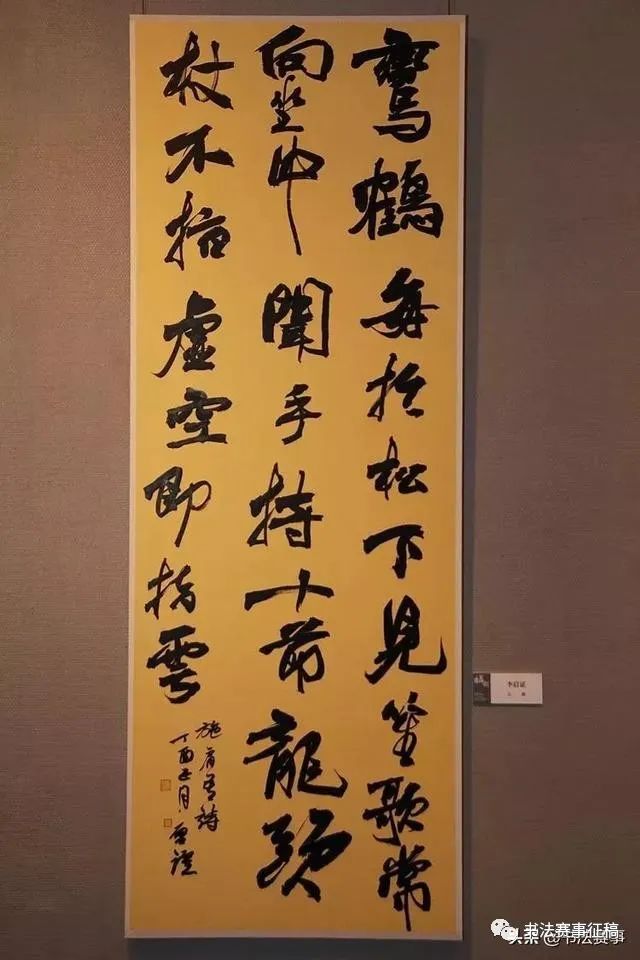 鸞鶴每於松下見笙歌常
向坐中聞手持十節龍頭
杖不指虛空即指雲
施肩吾詩
丁酉五月
书法赛事征稿
头条 @书法赛事